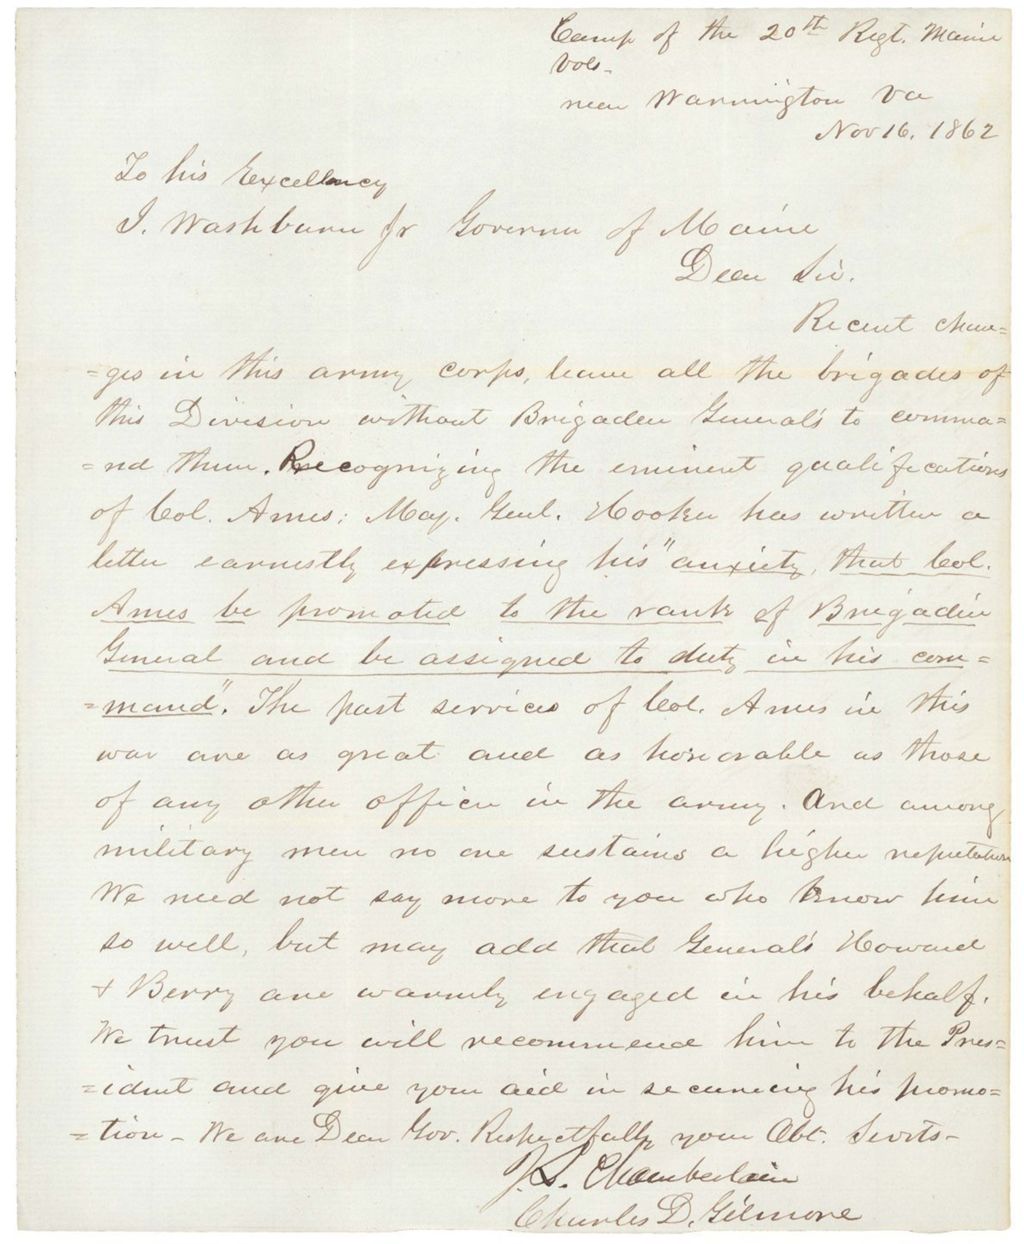 Camp of the 20th Regt. Maine
Vols-
near Warrington Va
Nov 16, 1862
To his Excellency
I. Washburn Jr Governor of Maine
Dear Sir.
Recent chan=
=ges in this army corps, leave all the brigades of
this Division without Brigadier General's to comma=
=nd them. Recognizing the eminent qualifications
of Col. Ames; Maj. Genl. Hooker has written a
letter earnestly expressing his "anxiety, that Col.
Ames be promoted to the rank of Brigadier
General and be assigned to duty in his com=
=mand". The past services of Col. Ames in this
war are as great and as honorable as those
of any other officer in the army. And among
military men no one sustains a higher reputation
We need not say more to you who know him
so well, but may add that General's Howard
& Berry are warmly engaged in his behalf.
We trust you will recommend him to the Pres=
=ident and give your aid in securing his promo=
=tion - We are Dear Gov. Respectfully your Obt. Servts-
J.L. Chamberlain
Charles D. Gilmore